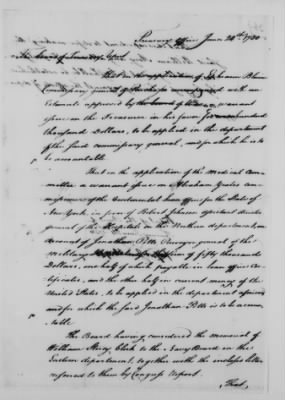 Treasury Office June 20th 1780
The Board of Treasury Report
That on the application of Ephraim Blaine
Commissary general of Purchases accompanied with an
Estimate approved by the Board of War a warrant
issue on the Treasurer in his favor for hundred
thousand Dollars, to be applied in the department
of the said Commissary general, and for which he is to
be accountable.
That on the application of the Medical Com-
mittee a warrant issue on Abraham Yates com-
missioner of the Continental Loan office for the State of
New York, in favor of Robert Johnson assistant director
general of the Hospitals in the Northern department, on
account of Jonathan Potts Purveyor general of the
Military Hospitals of fifty thousand
Dollars, one half of which payable in loan office cer-
tificates, and the other half in current money of the
United States, to be applied in the department aforesaid
and for which the said Jonathan Potts is to be accoun-
table.
The Board having considered the memorial of
William Story Clerk to the Navy Board in the
Eastern department, together with the enclosed letter
referred to them by Congress Report.
That